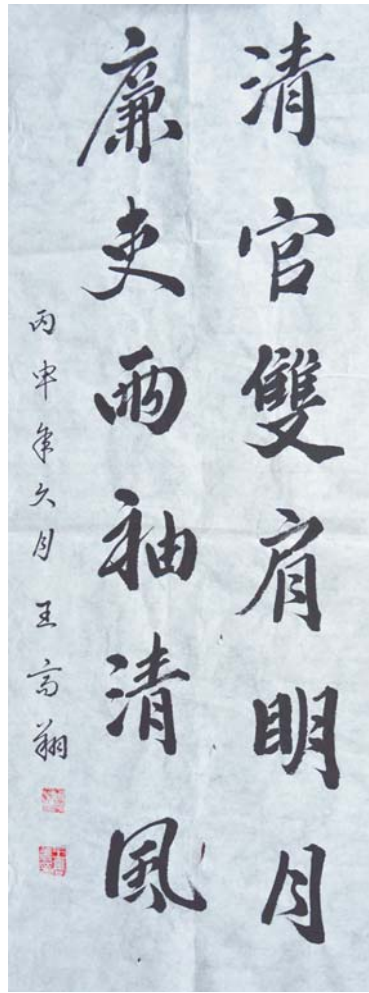 清官雙肩明月
廉吏兩袖清風
丙申年月王高翔